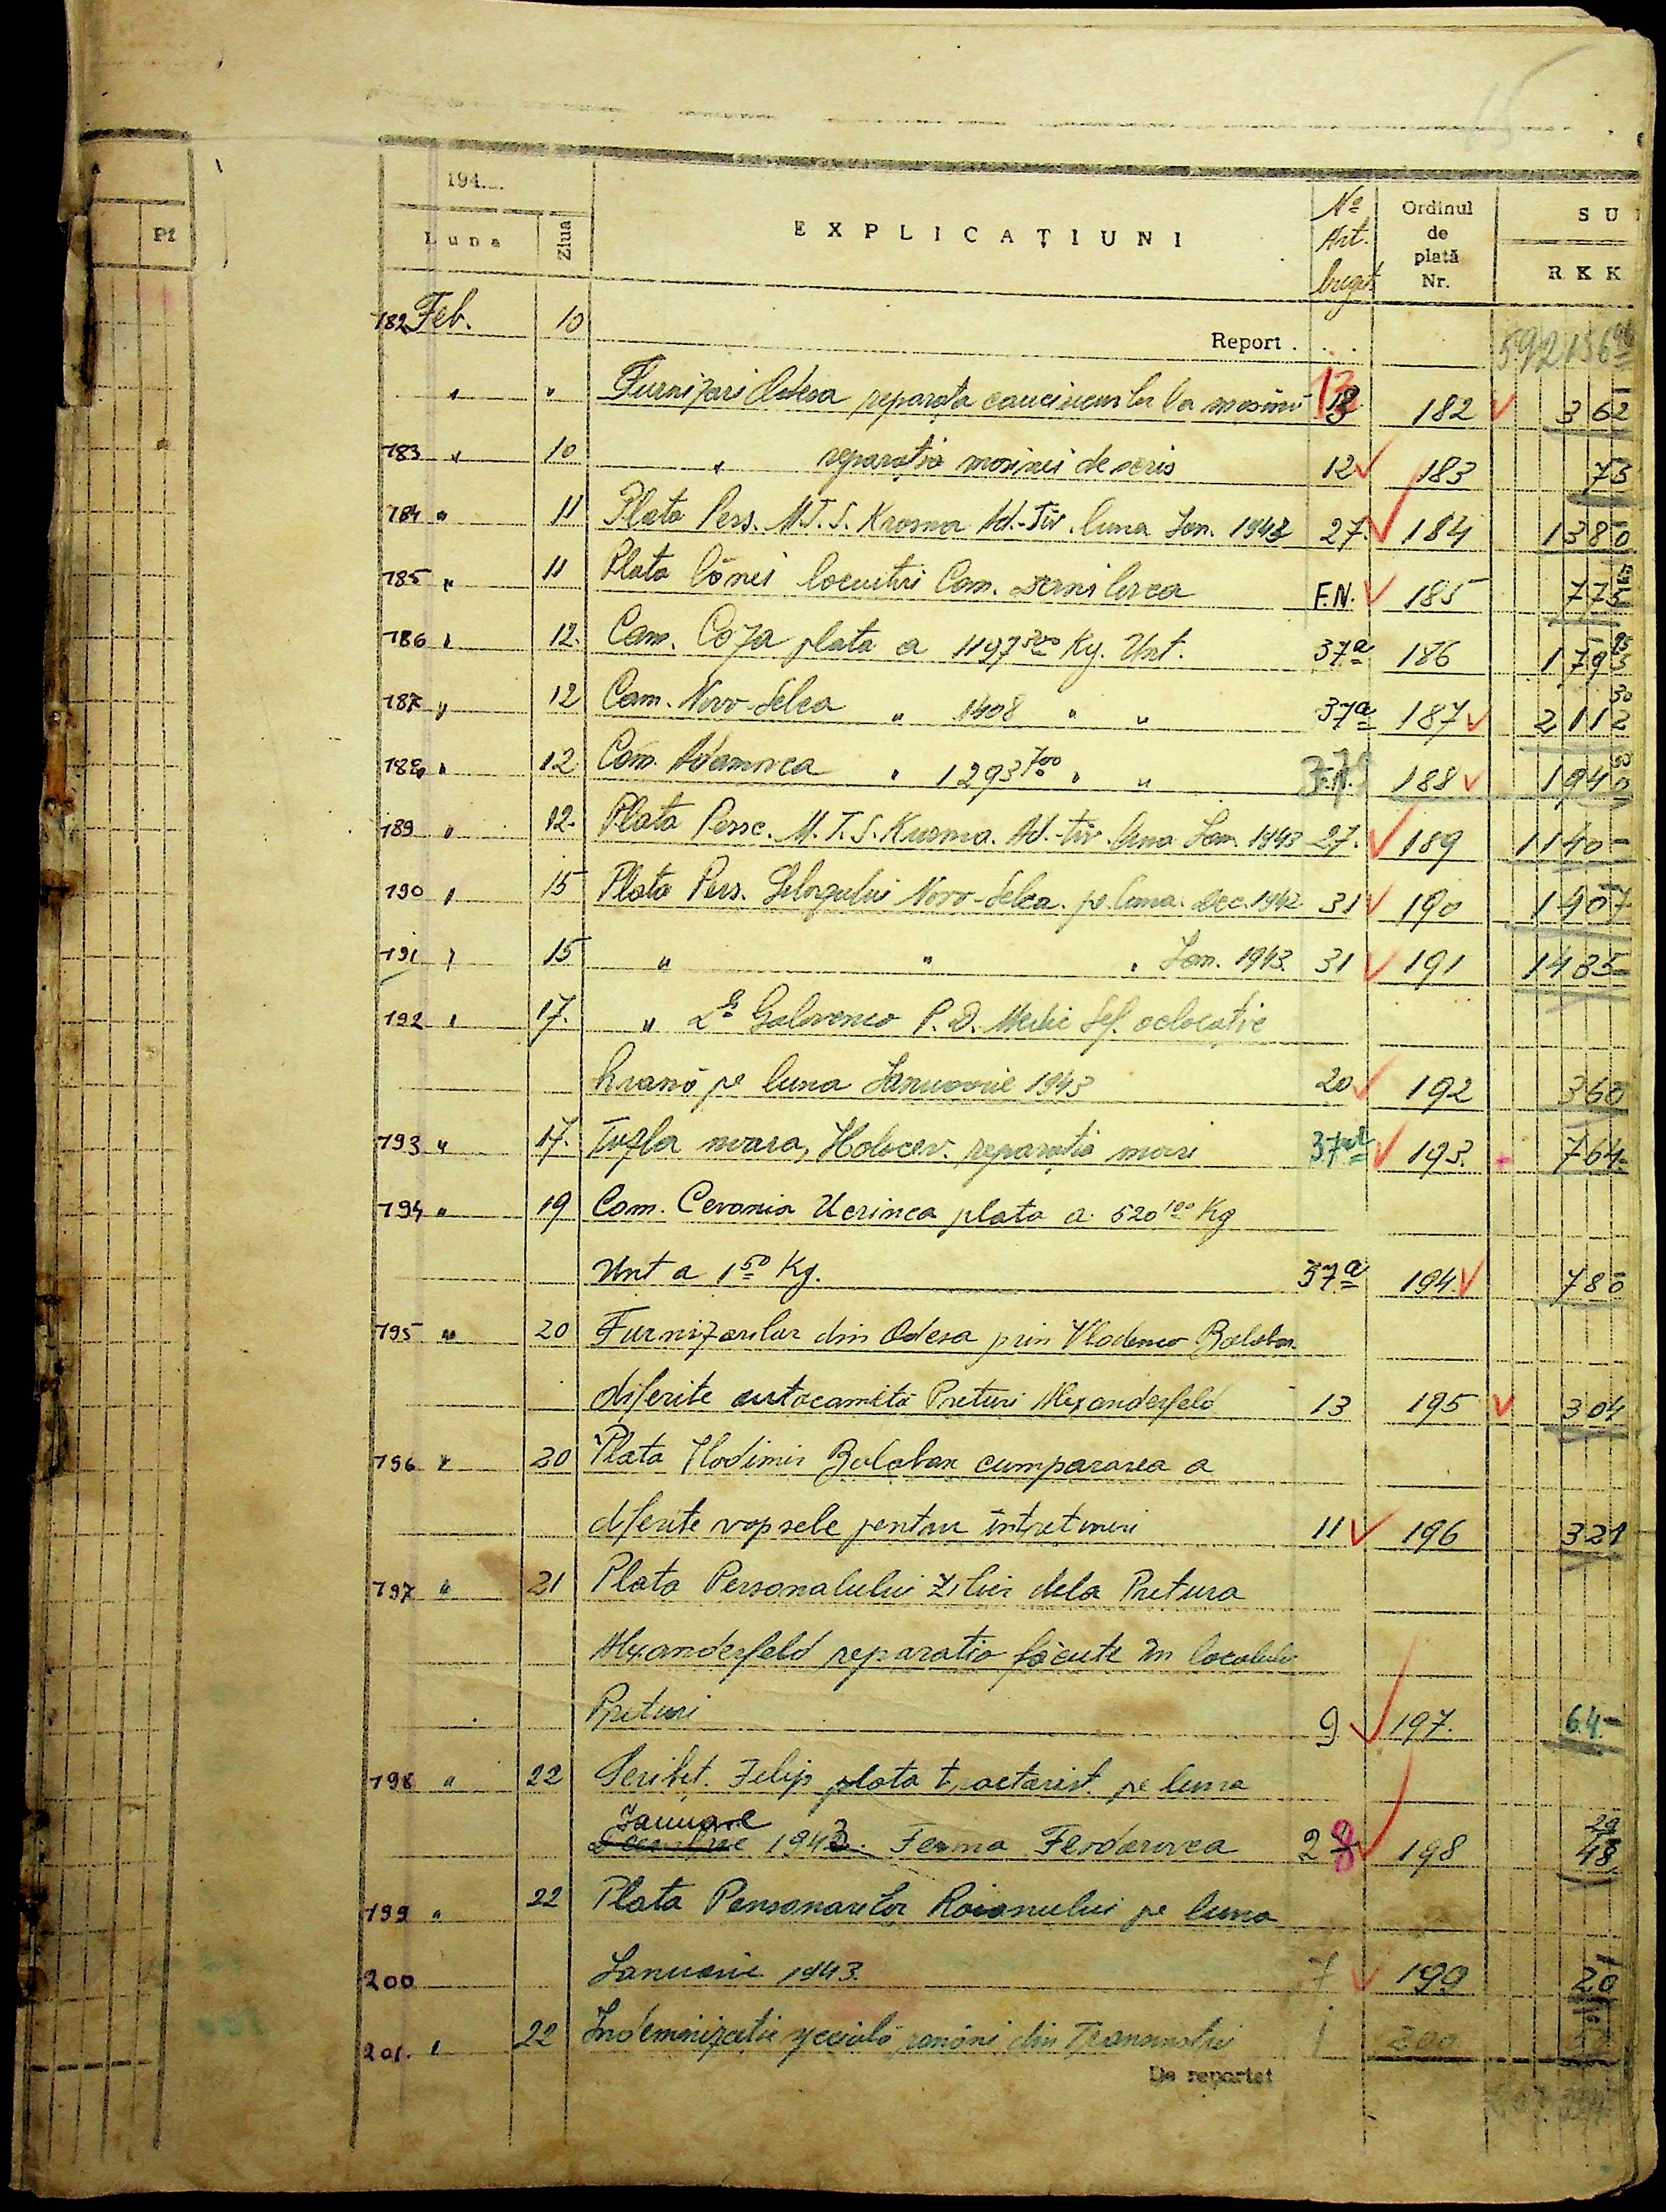 15
194....
Luna Ziua EXPLICAȚIUNI No Art. buget Ordinul de plată Nr. SU
RKK
Pf
182 Feb. 10 Report . . . 592136
" " Furnizori Odesa reparația cauciucurilor la mașini 13 182 362
183 " 10 " reparația mașinei de scris 12 183 73
184 " 11 Plata Pers. M.T.S. Ad-tiv. luna Ian. 1943 27. 184 1380
185 " 11 Plata lânei locuitori Com. F.N. 185 775
186 " 12. Com. plata a 1197 500 Kg. Unt. 37a 186 1795 95
187 " 12 Com. Novo-Selca " 1408 " " 37a 187 2112 30
188 " 12 Com. Adamovca " 1293 700 " " 188 1940
189 " 12. Plata Persc. M.T.S. Ad.-tiv luna Ian. 1943 27. 189 1140-
190 " 15 Plata Pers. Novo-Selca. pe luna Dec. 1942 31 190 1407
191 " 15 " " " Ian. 1943. 31 191 1435
192 " 17. " Golovenco P.D. Medic Șef. alocație
hrană pe luna Ianuarie 1943 20 192 360
193 " 17. moara, reparația morii 193. 764-
194 " 19 Com. Ucrinca plata a 520 100 Kg
Unt a 1 50 Kg. 37a 194. 780
195 " 20 Furnizorilor din Odesa prin Balaban
diferite Preturi Alexanderfeld 13 195 304
196 " 20 Plata Vlodimir Balaban cumpararea a
diferite vopsele pentru intretineri 11 196 321
197 " 21 Plata Personalului Zilier dela Pretura
Alexanderfeld reparatia făcute în localului
Preturi 9 197. 64.-
198 " 22 Filip plata tractorist. pe luna
Ianuarie 1943. Ferma Feodorovca 28 198 48 20
199 " 22 Plata Pensonarilor Raionului pe luna
200 Ianuarie 1943. 7 199 20
201. " 22 Indemnizatie specială români din Transnistri 1 200
De reportat